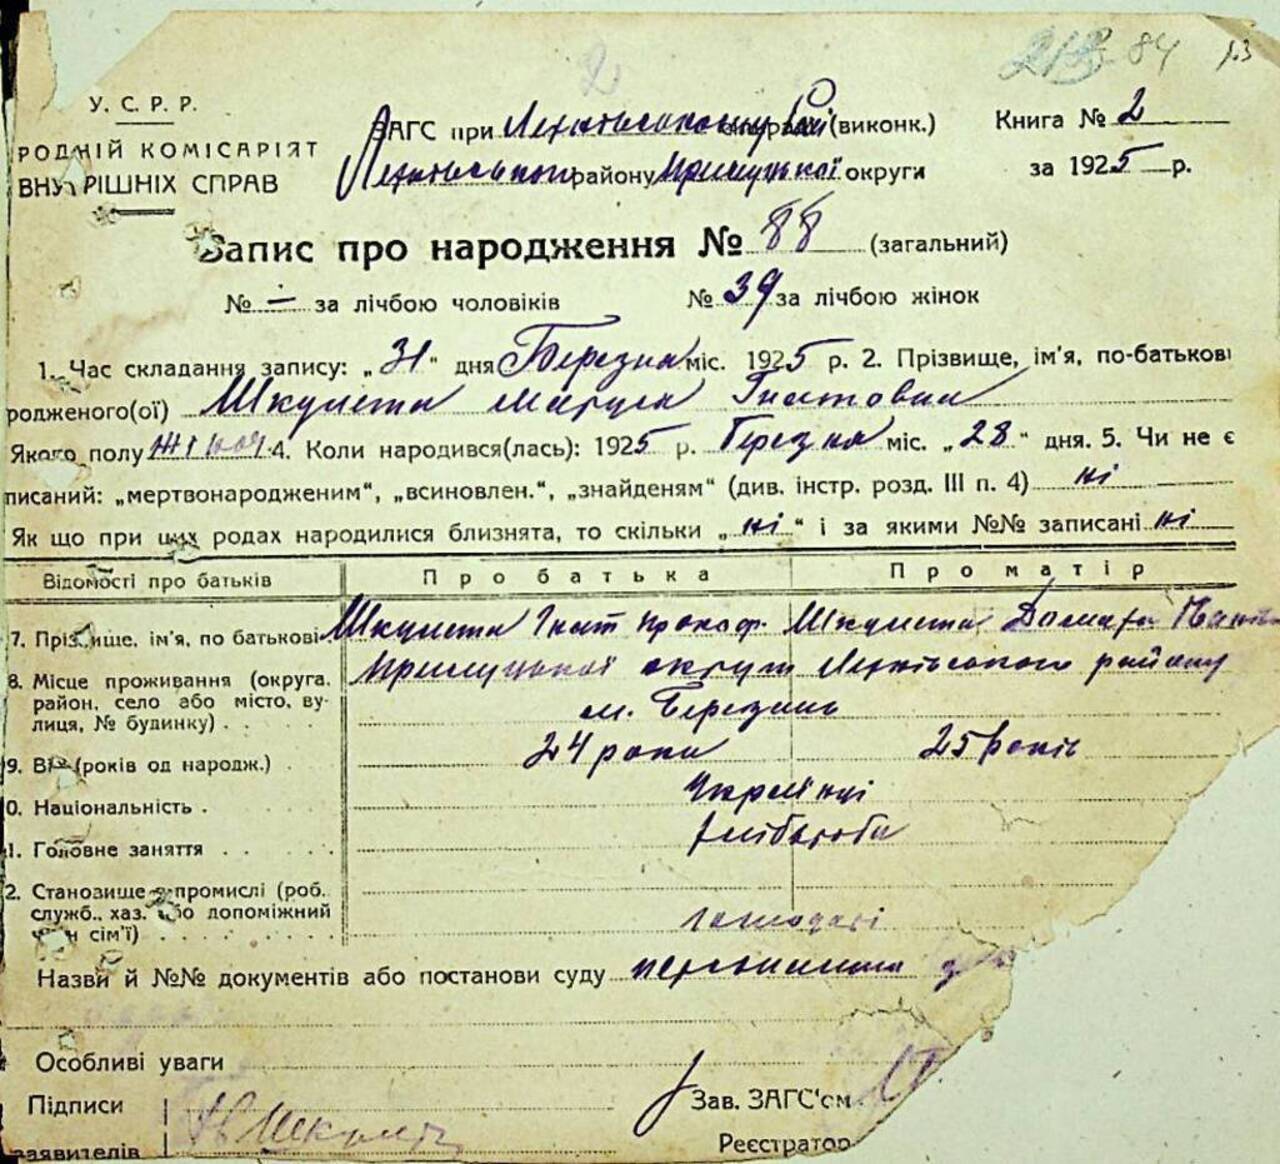 84
У. С. Р. Р.
РОДНІЙ КОМІСАРІЯТ
ВНУТРІШНІХ СПРАВ
ЗАГС при (виконк.)
району Прилуцької округи
Книга № 2
за 1925 р.
Запис про народження № 88 (загальний)
№ — за лічбою чоловіків № 39 за лічбою жінок
1. Час складання запису: „31“ дня Березня міс. 1925 р. 2. Прізвище, ім'я, по-батькові
родженого(ої)
Якого полу жіноч. 4. Коли народився(лась): 1925 р. Березня міс. „28“ дня. 5. Чи не є
писаний: „мертвонародженим“, „всиновлен.“, „знайденям“ (див. інстр. розд. III п. 4) ні
Як що при цих родах народилися близнята, то скільки „ні“ і за якими №№ записані ні
Відомості про батьків Про батька Про матір
7. Прізвище, ім'я, по батькові
8. Місце проживання (округа, Прилуцької округи району
район, село або місто, ву- м. Березань
лиця, № будинку)
9. Вік (років од народж.) 24 роки 25 років
0. Національність Українці
1. Головне заняття хліборобы
2. Становище в промислі (роб.
служб., хаз. або допоміжний господарі
член сім'ї)
Назви й №№ документів або постанови суду
Особливі уваги
Підписи
заявителів
Зав. ЗАГС'ом
Реєстратор